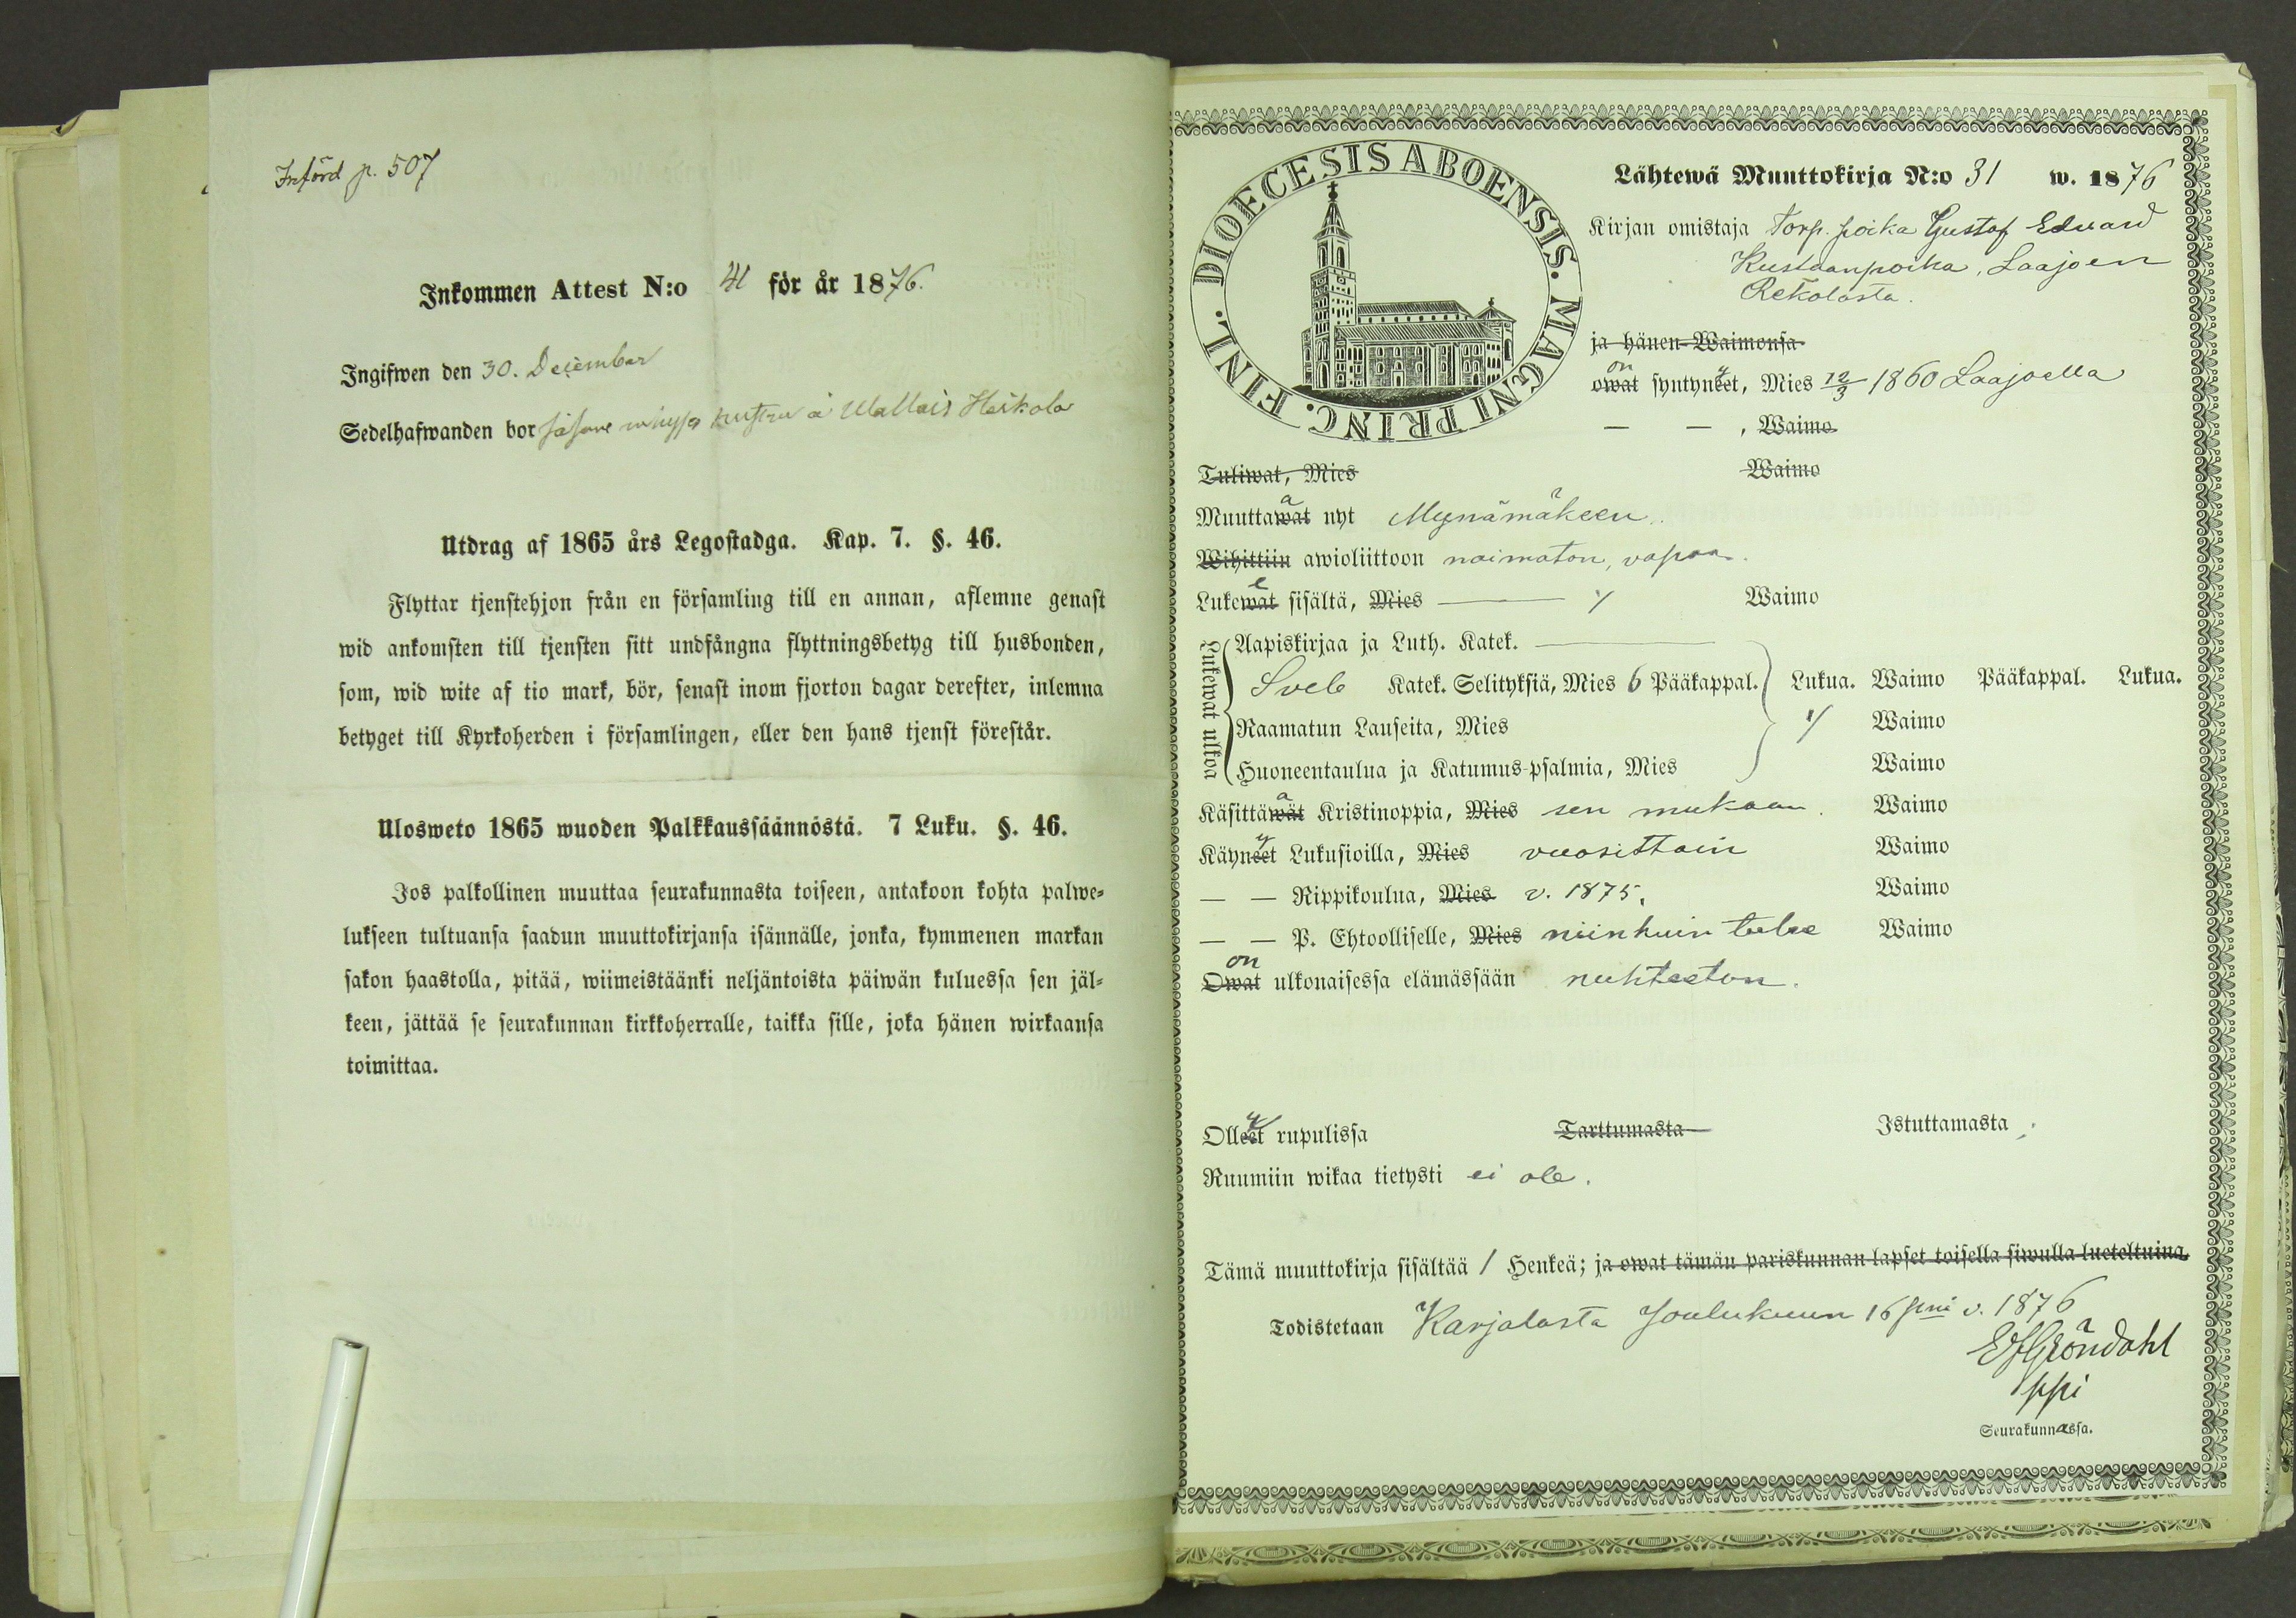 Införd p. 507
Inkommen Attest N:o 41 för år 1876.
Ingifwen den 30. December
Sedelhafwanden bor å Wallais Heikola
Utdrag af 1865 års Legostadga. Kap. 7. §. 46.
Flyttar tjenstehjon från en församling till en annan, aflemne genast
wid ankomsten till tjensten sitt undfångna flyttningsbetyg till husbonden,
som, wid wite af tio mark, bör, senast inom fjorton dagar derefter, inlemna
betyget till Kyrkoherden i församlingen, eller den hans tjenst förestår.
Ulosweto 1865 wuoden Palkkaussäännöstä. 7 Luku. §. 46.
Jos palkollinen muuttaa seurakunnasta toiseen, antakoon kohta palwe-
lukseen tultuansa saadun muuttokirjansa isännälle, jonka, kymmenen markan
sakon haastolla, pitää, wiimeistäänki neljäntoista päiwän kuluessa sen jäl-
keen, jättää se seurakunnan kirkkoherralle, taikka sille, joka hänen wirkaansa
toimittaa.
FINL. DIOECESIS ABOENSIS. MAGNI PRINC.
Lähtewä Muuttokirja N:o 31 w. 1876
Kirjan omistaja Torp. poika Gustaf Edward
Kustaanpoika, Laajoen
Rekolasta.
ja hänen Waimonsa
on
owat syntyneet, Mies 12/3 1860 Laajoella
— — , Waimo
Tuliwat, Mies Waimo
Muuttawat nyt Mynämäkeen.
Wihittiin awioliittoon naimaton, vapaa.
Lukewat sisältä, Mies — Waimo
Lukewat ulkoa
Aapiskirjaa ja Luth. Katek. —
Sveb Katek. Selityksiä, Mies 6 Pääkappal. Lukua. Waimo Pääkappal. Lukua.
Raamatun Lauseita, Mies Waimo
Huoneentaulua ja Katumus-psalmia, Mies Waimo
Käsittäwät Kristinoppia, Mies sen mukaan. Waimo
Käyneet Lukusioilla, Mies vuosittain Waimo
— — Rippikoulua, Mies v. 1875. Waimo
— — P. Ehtoolliselle, Mies niinkuin tulee Waimo
on
Owat ulkonaisessa elämässään nuhteeton.
Olleet rupulissa Tarttumasta Istuttamasta
Ruumiin wikaa tietysti ei ole.
Tämä muuttokirja sisältää 1 Henkeä; ja owat tämän pariskunnan lapset toisella siwulla lueteltuina.
Todistetaan Karjalasta Joulukuun 16 pnä v. 1876
Gröndahl
Seurakunnassa.